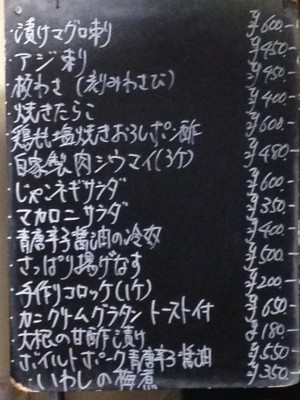 ・漬けマグロ刺 ¥600-
・アジ刺 ¥450-
・板わさ(刻みわさび) ¥450-
・焼きたらこ ¥400-
・鶏もも塩焼きおろしポン酢 ¥600-
・自家製肉シウマイ(3ケ) ¥480-
・じゃこネギサラダ ¥600-
・マカロニサラダ ¥350-
・青唐辛子醤油の冷奴 ¥400-
・さっぱり揚げなす ¥500-
・手作りコロッケ(1ケ) ¥200-
・カニクリームグラタン トースト付 ¥650-
・大根の甘酢漬け ¥180-
・ボイルドポーク青唐辛子醤油 ¥550-
・いわしの梅煮 ¥350-